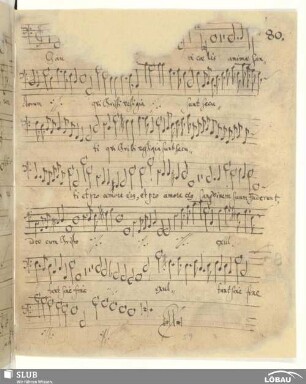 80.
Gau in cœlis animæ san,
ctorum qui Christi vestigia sunt secu
ti qui Christi vestigia sunt secu,
ti et pro amore eius, et pro amore eius sanguinem suum fuderunt,
ideo cum Christo exul
tant sine fine exul tant sine fine
SLUB
Wir führen Wissen.
LÖBAU